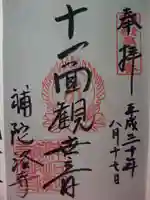 奉拝
平成三十年
八月十七日
十一面観世音
補陀洛寺